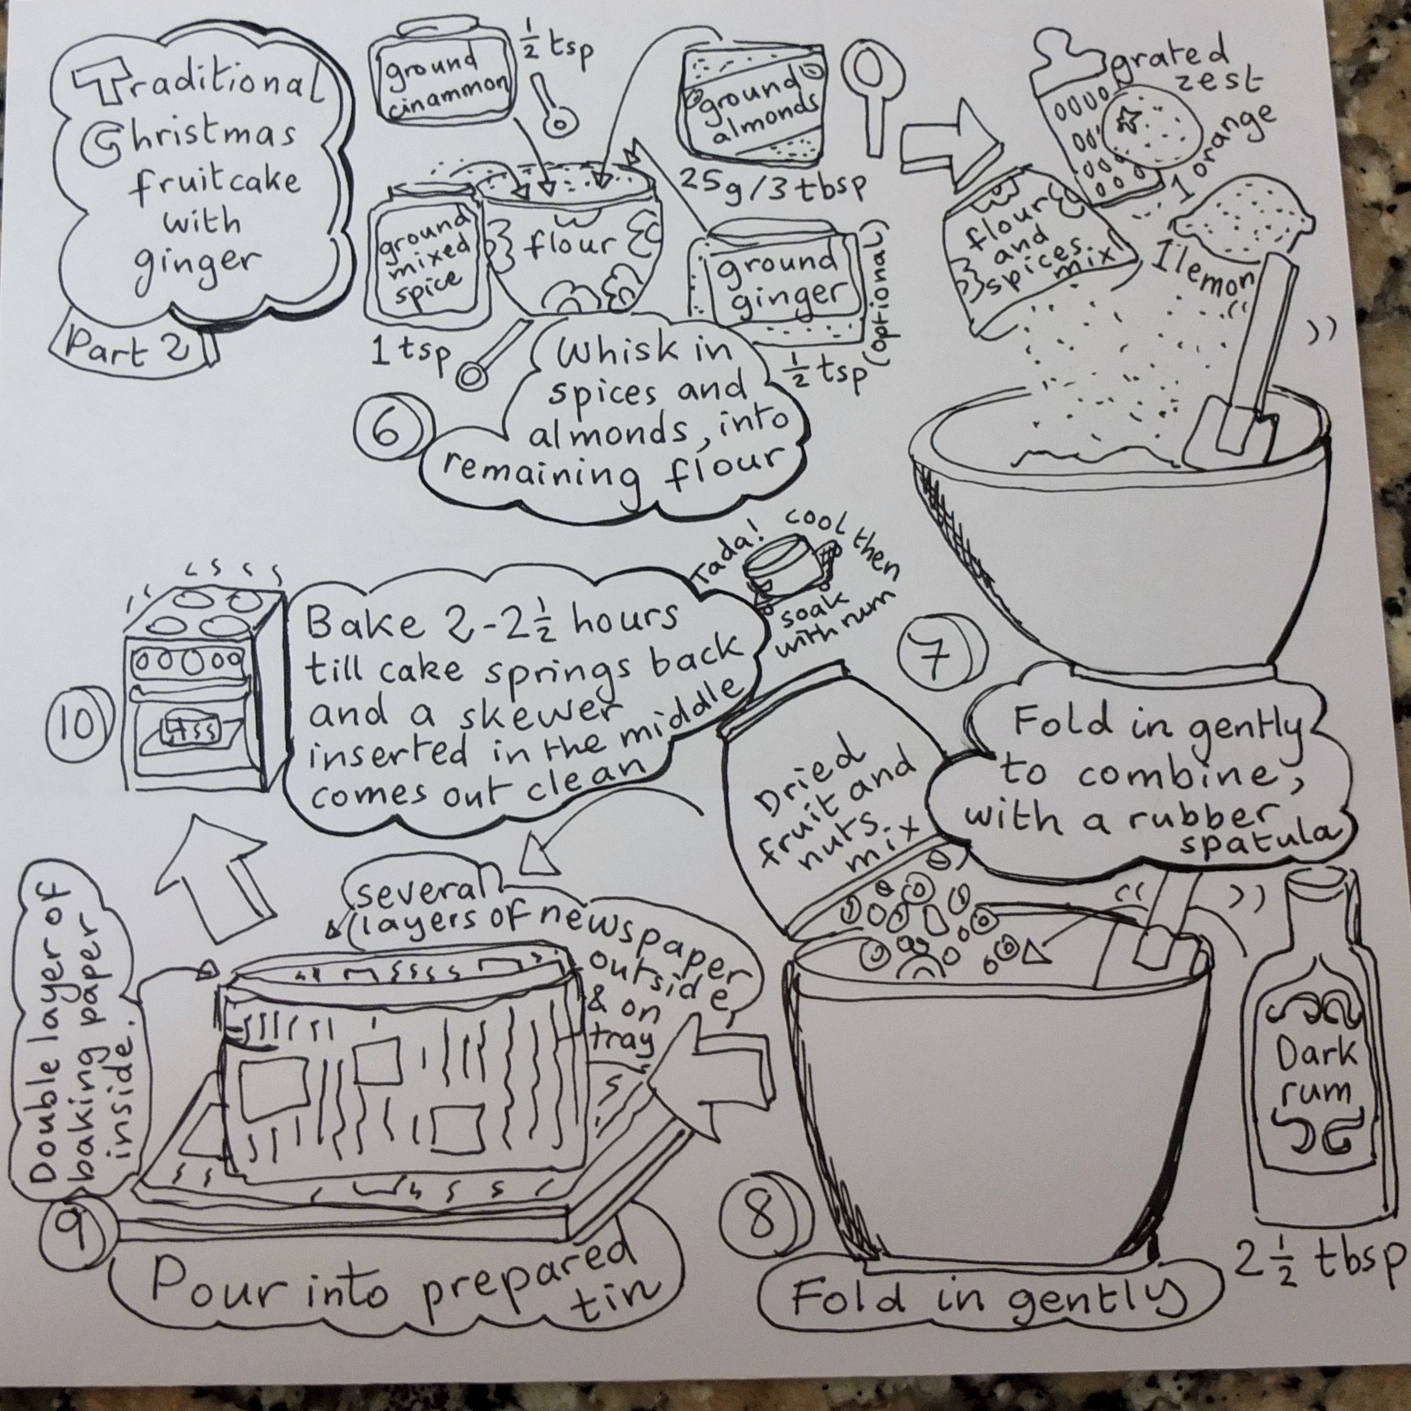 Traditional
Christmas
fruitcake
with
ginger
Part 2
ground
cinammon
1/2 tsp
ground
almonds
25g/3 tbsp
ground
mixed
spice
1 tsp
flour
ground
ginger
1/2 tsp (optional)
6
Whisk in
spices and
almonds, into
remaining flour
grated
zest
1 orange
1 lemon
flour
and
spices
mix
7
Fold in gently
to combine,
with a rubber
spatula
Dried
fruit and
nuts
mix
Dark
rum
2 1/2 tbsp
8
Fold in gently
several
layers of newspaper
outside
& on
tray
Double layer of
baking paper
inside.
9
Pour into prepared
tin
10
Bake 2-2 1/2 hours
till cake springs back
and a skewer
inserted in the middle
comes out clean
Tada!
cool then
soak
with rum